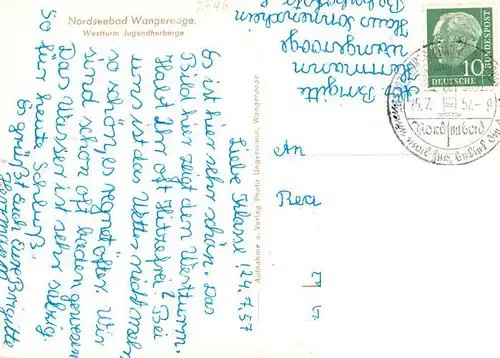 Nordseebad Wangerooge.
Westturm Jugendherberge
Liebe Klasse! 24.7.57
Es ist hier sehr schön. Das
Bild hier zeigt den Westturm.
Habt Ihr oft Hitzefrei? Bei
uns ist das Wetter nicht
so schönes, regnet öfter. Wir
sind schon oft baden gewesen
Das Wasser ist sehr salzig.
So für heute Schluß.
Es grüßt Euch Eure Brigitte
Herrmann
Aufnahme u. Verlag Photo Lingermann, Wangerooge
Abs. Brigitte
Herrmann
Wangerooge
Haus Sonnenschein
An
Rea
10
DEUTSCHE
BUNDESPOST
25.7.57.-9
Nordseebad